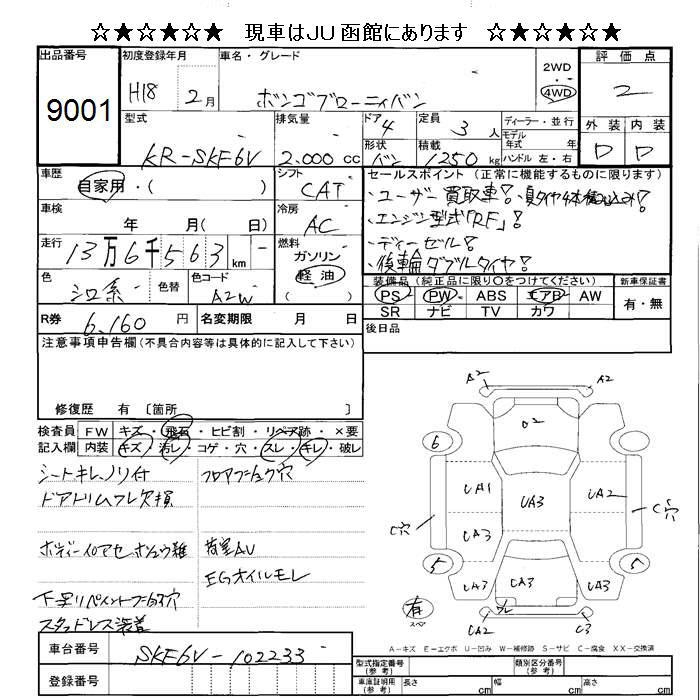 ☆★☆★☆★ 現車はJU函館にあります ☆★☆★☆★
出品番号 9001
初度登録年月 H18 2月
車名・グレード ボンゴブローニィバン
2WD 4WD
評価点 2
外装 D 内装 D
型式 KR-SKF6V
排気量 2.000cc
ドア 4
定員 3人
形状 バン
積載 1250kg
ディーラー・並行
モデル年式 年
ハンドル 左・右
車歴 自家用・( )
シフト CAT
車検 年 月( 日)
冷房 AC
走行 13万6千563km
燃料 ガソリン 軽油 ( )
色 シロ系 色替
色コード A2W
セールスポイント (正常に機能するものに限ります)
・ユーザー買取車!
・エンジン型式「RF」!
・ディーゼル!
・後輪ダブルタイヤ!
装備品 (純正品に限り○をつけてください)
PS PW ABS エアB AW
SR ナビ TV カワ
新車保証書 有・無
後日品
R券 6,160円
名変期限 月 日
注意事項申告欄 (不具合内容等は具体的に記入して下さい)
修復歴 有 〔箇所 〕
検査員記入欄
FW キズ・飛石・ヒビ割・リペア跡・×要
内装 キズ・汚レ・コゲ・穴・スレ・キレ・破レ
シートキレ、ノリ付
フロアフショク穴
ドアトリムワレ欠損
ボディーイロアセ
荷室AU
EGオイルモレ
スタッドレス装着
A2 A2
02
6
UA1 UA3 UA2
C穴 C穴
UA3
5
UA3 UA3
有 スペア
ワレ
UA2 C3
A-キズ E-エクボ U-凹み W-補修跡 S-サビ C-腐食 XX-交換済
車台番号 SKF6V-102233
登録番号
型式指定番号(参考)
類別区分番号(参考)
車庫証明用(参考) 長さ cm 幅 cm 高さ cm